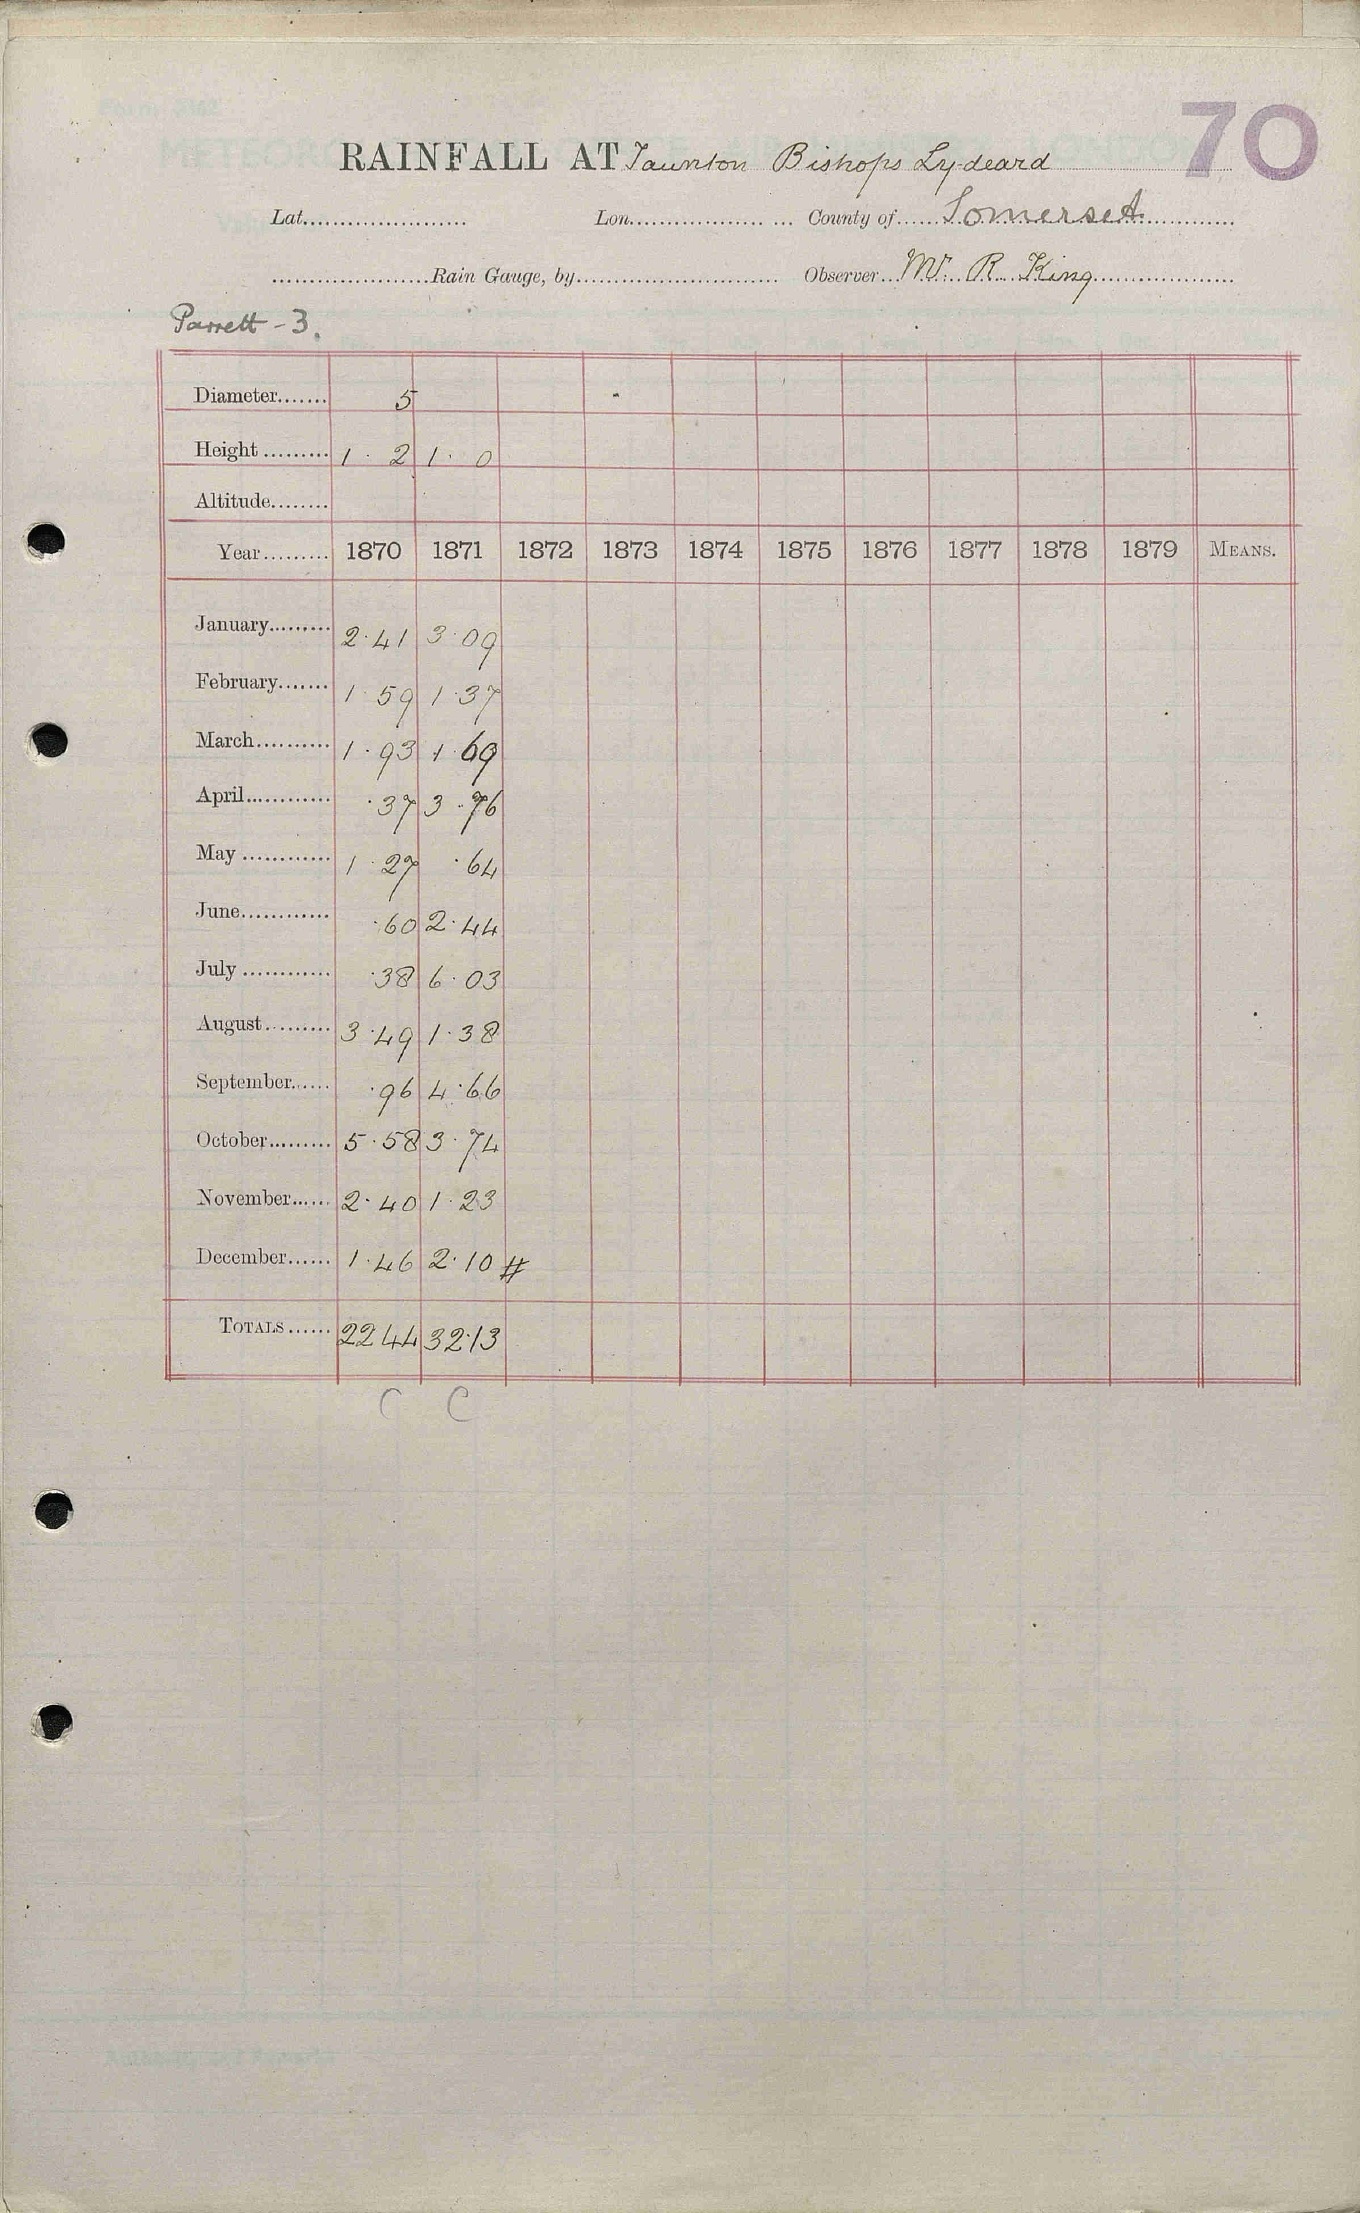 70
RAINFALL AT Taunton Bishops Lydeard
Lat. Lon. County of Somerset
Rain Gauge, by Observer Mr. R. King
Parrett - 3.
Diameter 5
Height 1 · 2 1 · 0
Altitude
Year 1870 1871 1872 1873 1874 1875 1876 1877 1878 1879 MEANS.
January 2·41 3·09
February 1·59 1·37
March 1·93 1·69
April ·37 3·76
May 1·27 ·64
June ·60 2·44
July ·38 6·03
August 3·49 1·38
September ·96 4·66
October 5·58 3·74
November 2·40 1·23
December 1·46 2·10 #
TOTALS 22 44 32·13
C C